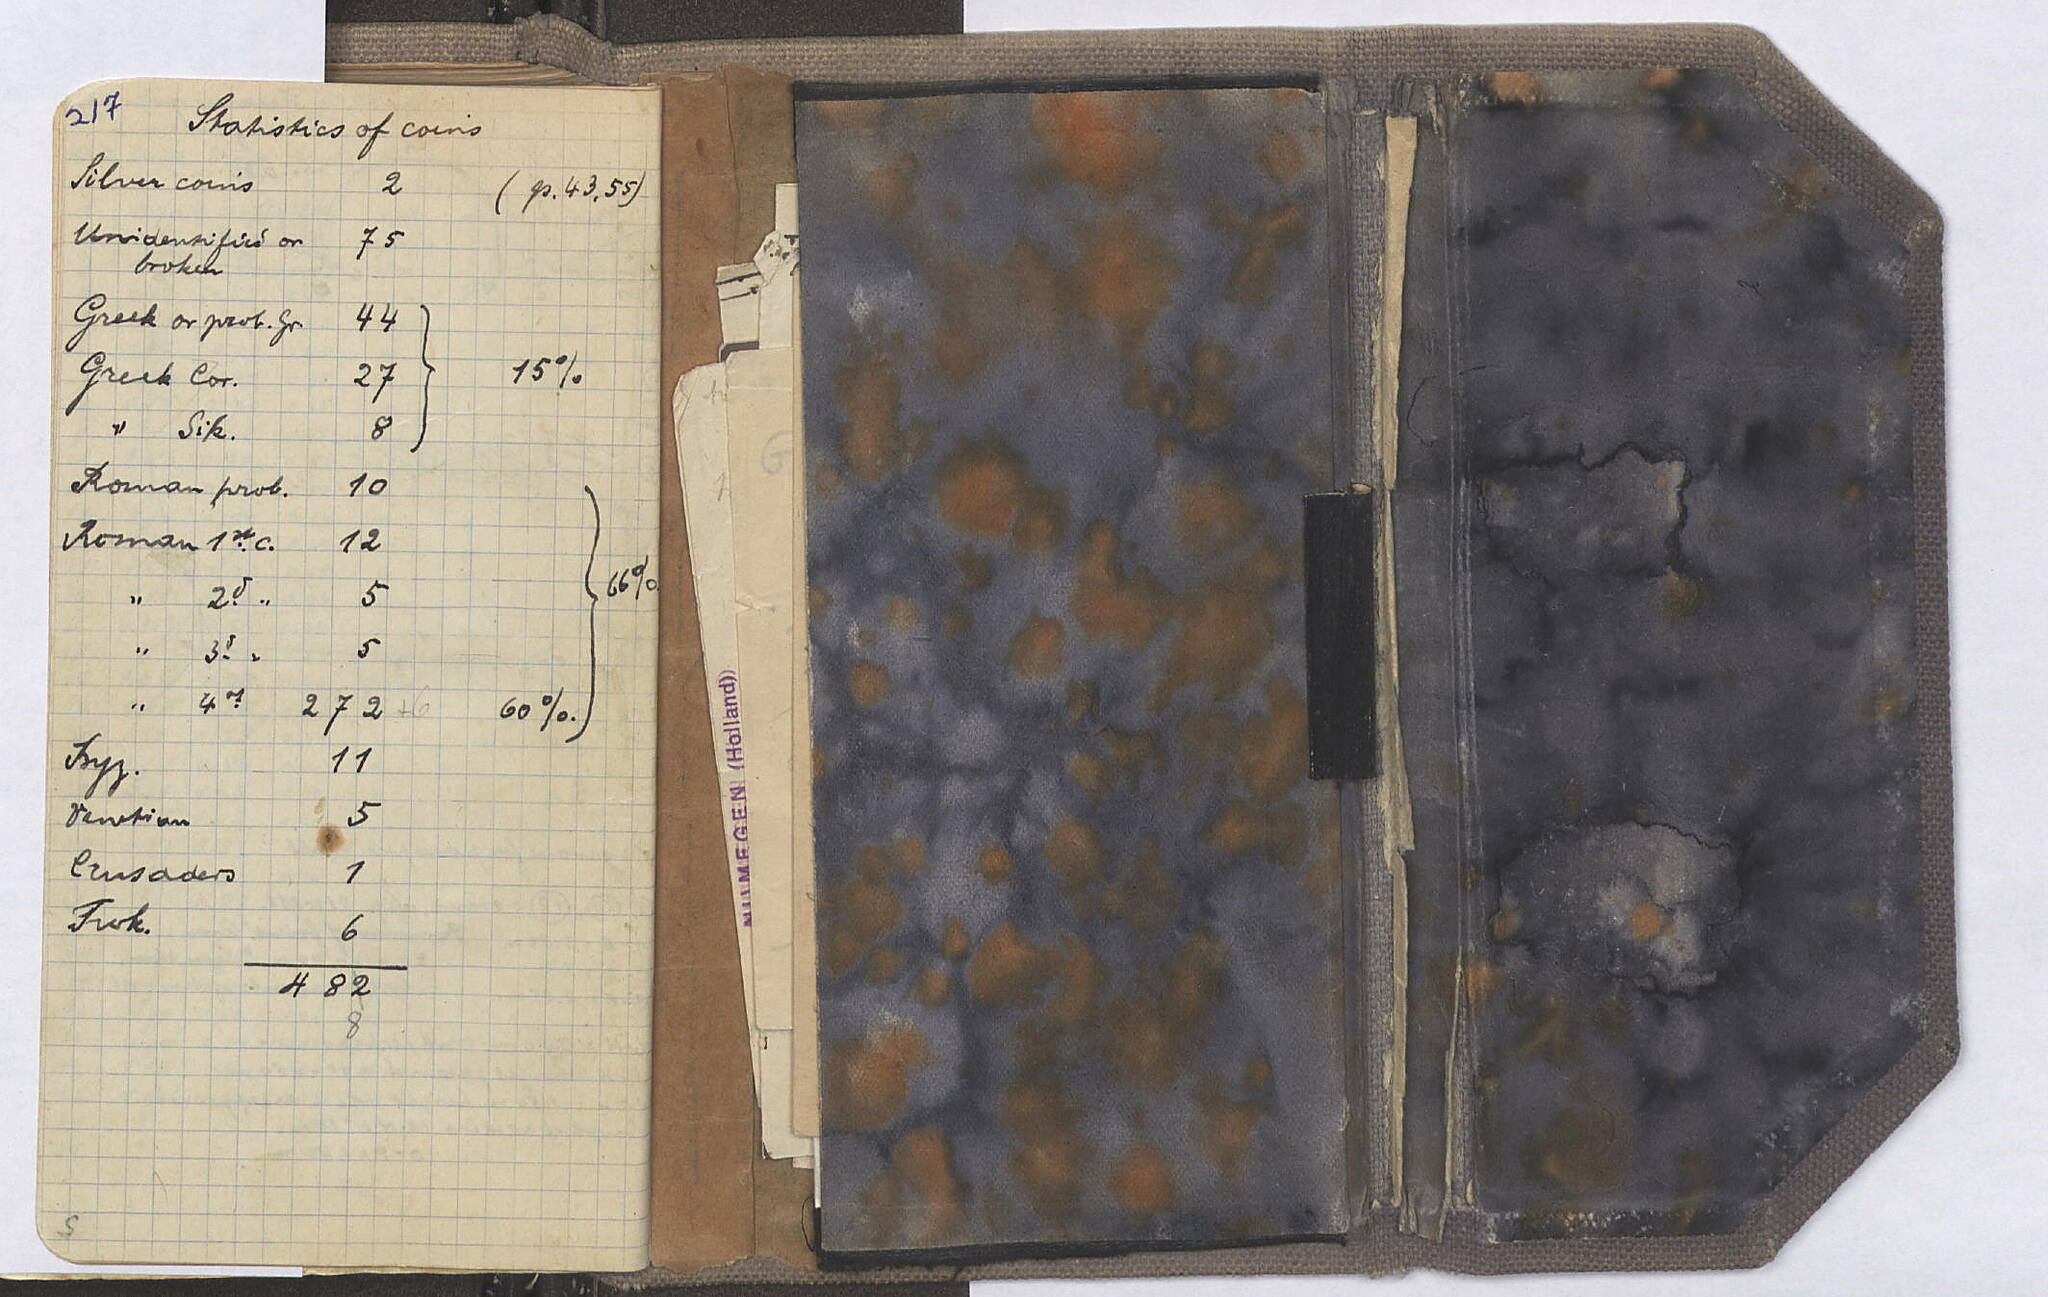 217
Statistics of coins
Silver coins 2 (p. 43, 55)
Unidentified or 75
broken
Greek or prob. Gr. 44
Greek Cor. 27 15%
" Sik. 8
Roman prob. 10
Roman 1st c. 12
" 2d " 5 66%
" 3d " 5
" 4th 272 +6 60%
Byz. 11
Venetian 5
Crusaders 1
6
482
8
NIJMEGEN (Holland)